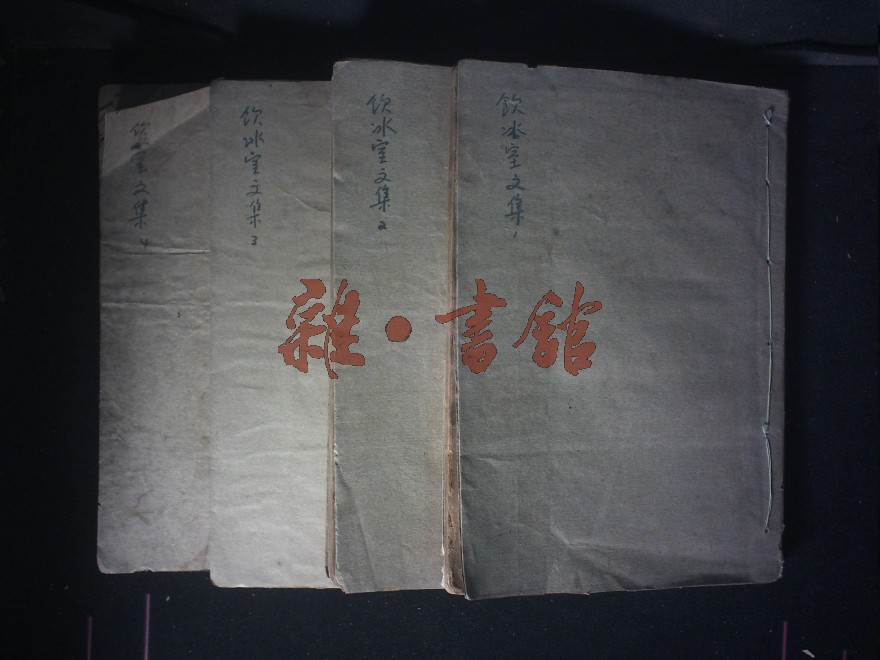 飲冰室文集 1
飲冰室文集 2
飲冰室文集 3
飲冰室文集 4
雜·書館